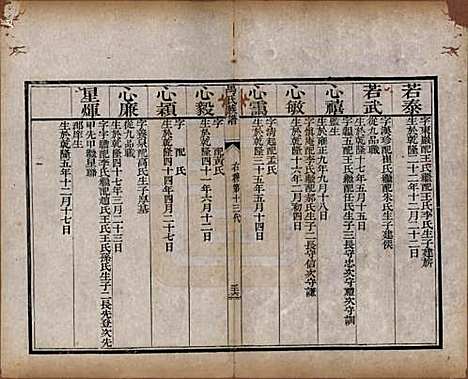 若泰
字東巖配王氏繼配王氏李氏生子建
生於乾隆三十二年十二月二十二日
若武
字漢珍配崔氏繼配朱氏生子建
從九品職
生於乾隆三十五年十月十五日
心禧
字 配王氏繼配任氏生子二長守忠次守訓
監生
生於雍正九年九月十八日
心敏
字 配 氏繼配 氏生子二長守信次守謙
生於乾隆十六年二月初四日
心
字清起配孟氏
生於乾隆三十五年五月十四日
馬氏族譜
右譜第十三代
心毅
字 配黃氏
生於乾隆四十一年六月十二日
心穎
字 配 氏
生於乾隆四十四年四月二十七日
心廉
字養泉配馮氏生子學基
從九品職
生於乾隆四十七年三月二十三日
星輝
字 配李氏繼配趙氏王氏王氏孫氏生子二長先登次先
甲先甲繼星聯
郡庠生
生於乾隆五年十二月十七日